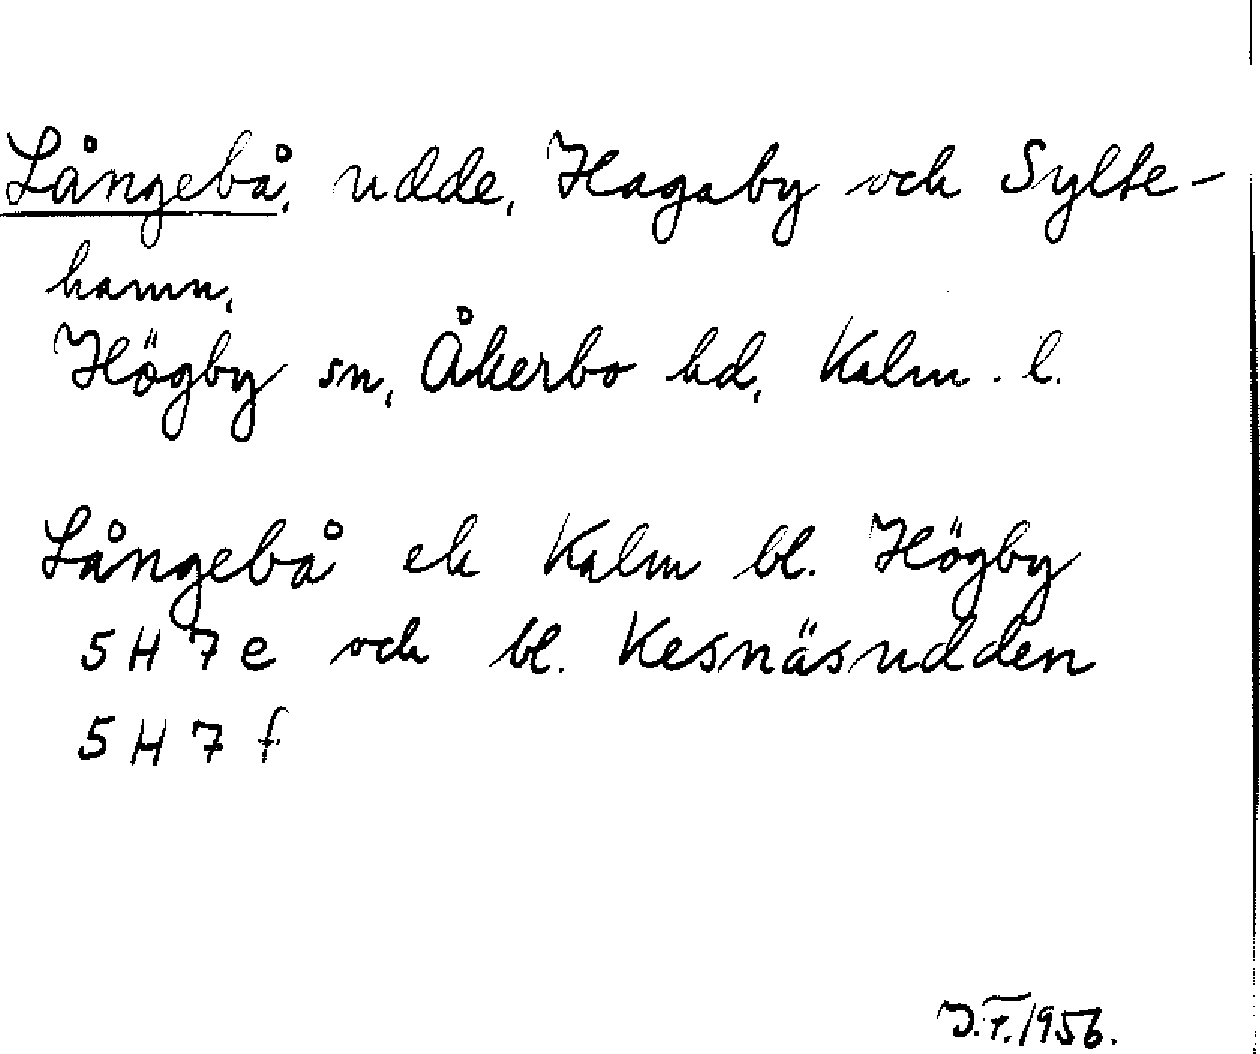 Långebå, udde, Hagaby och Sylte-
hamn,
Högby sn, Åkerbo hd, Kalm. l.
Långebå ek Kalm bl. Högby
5 H 7 e och bl. Kesnäsudden
5 H 7 f
J.F. 1956.